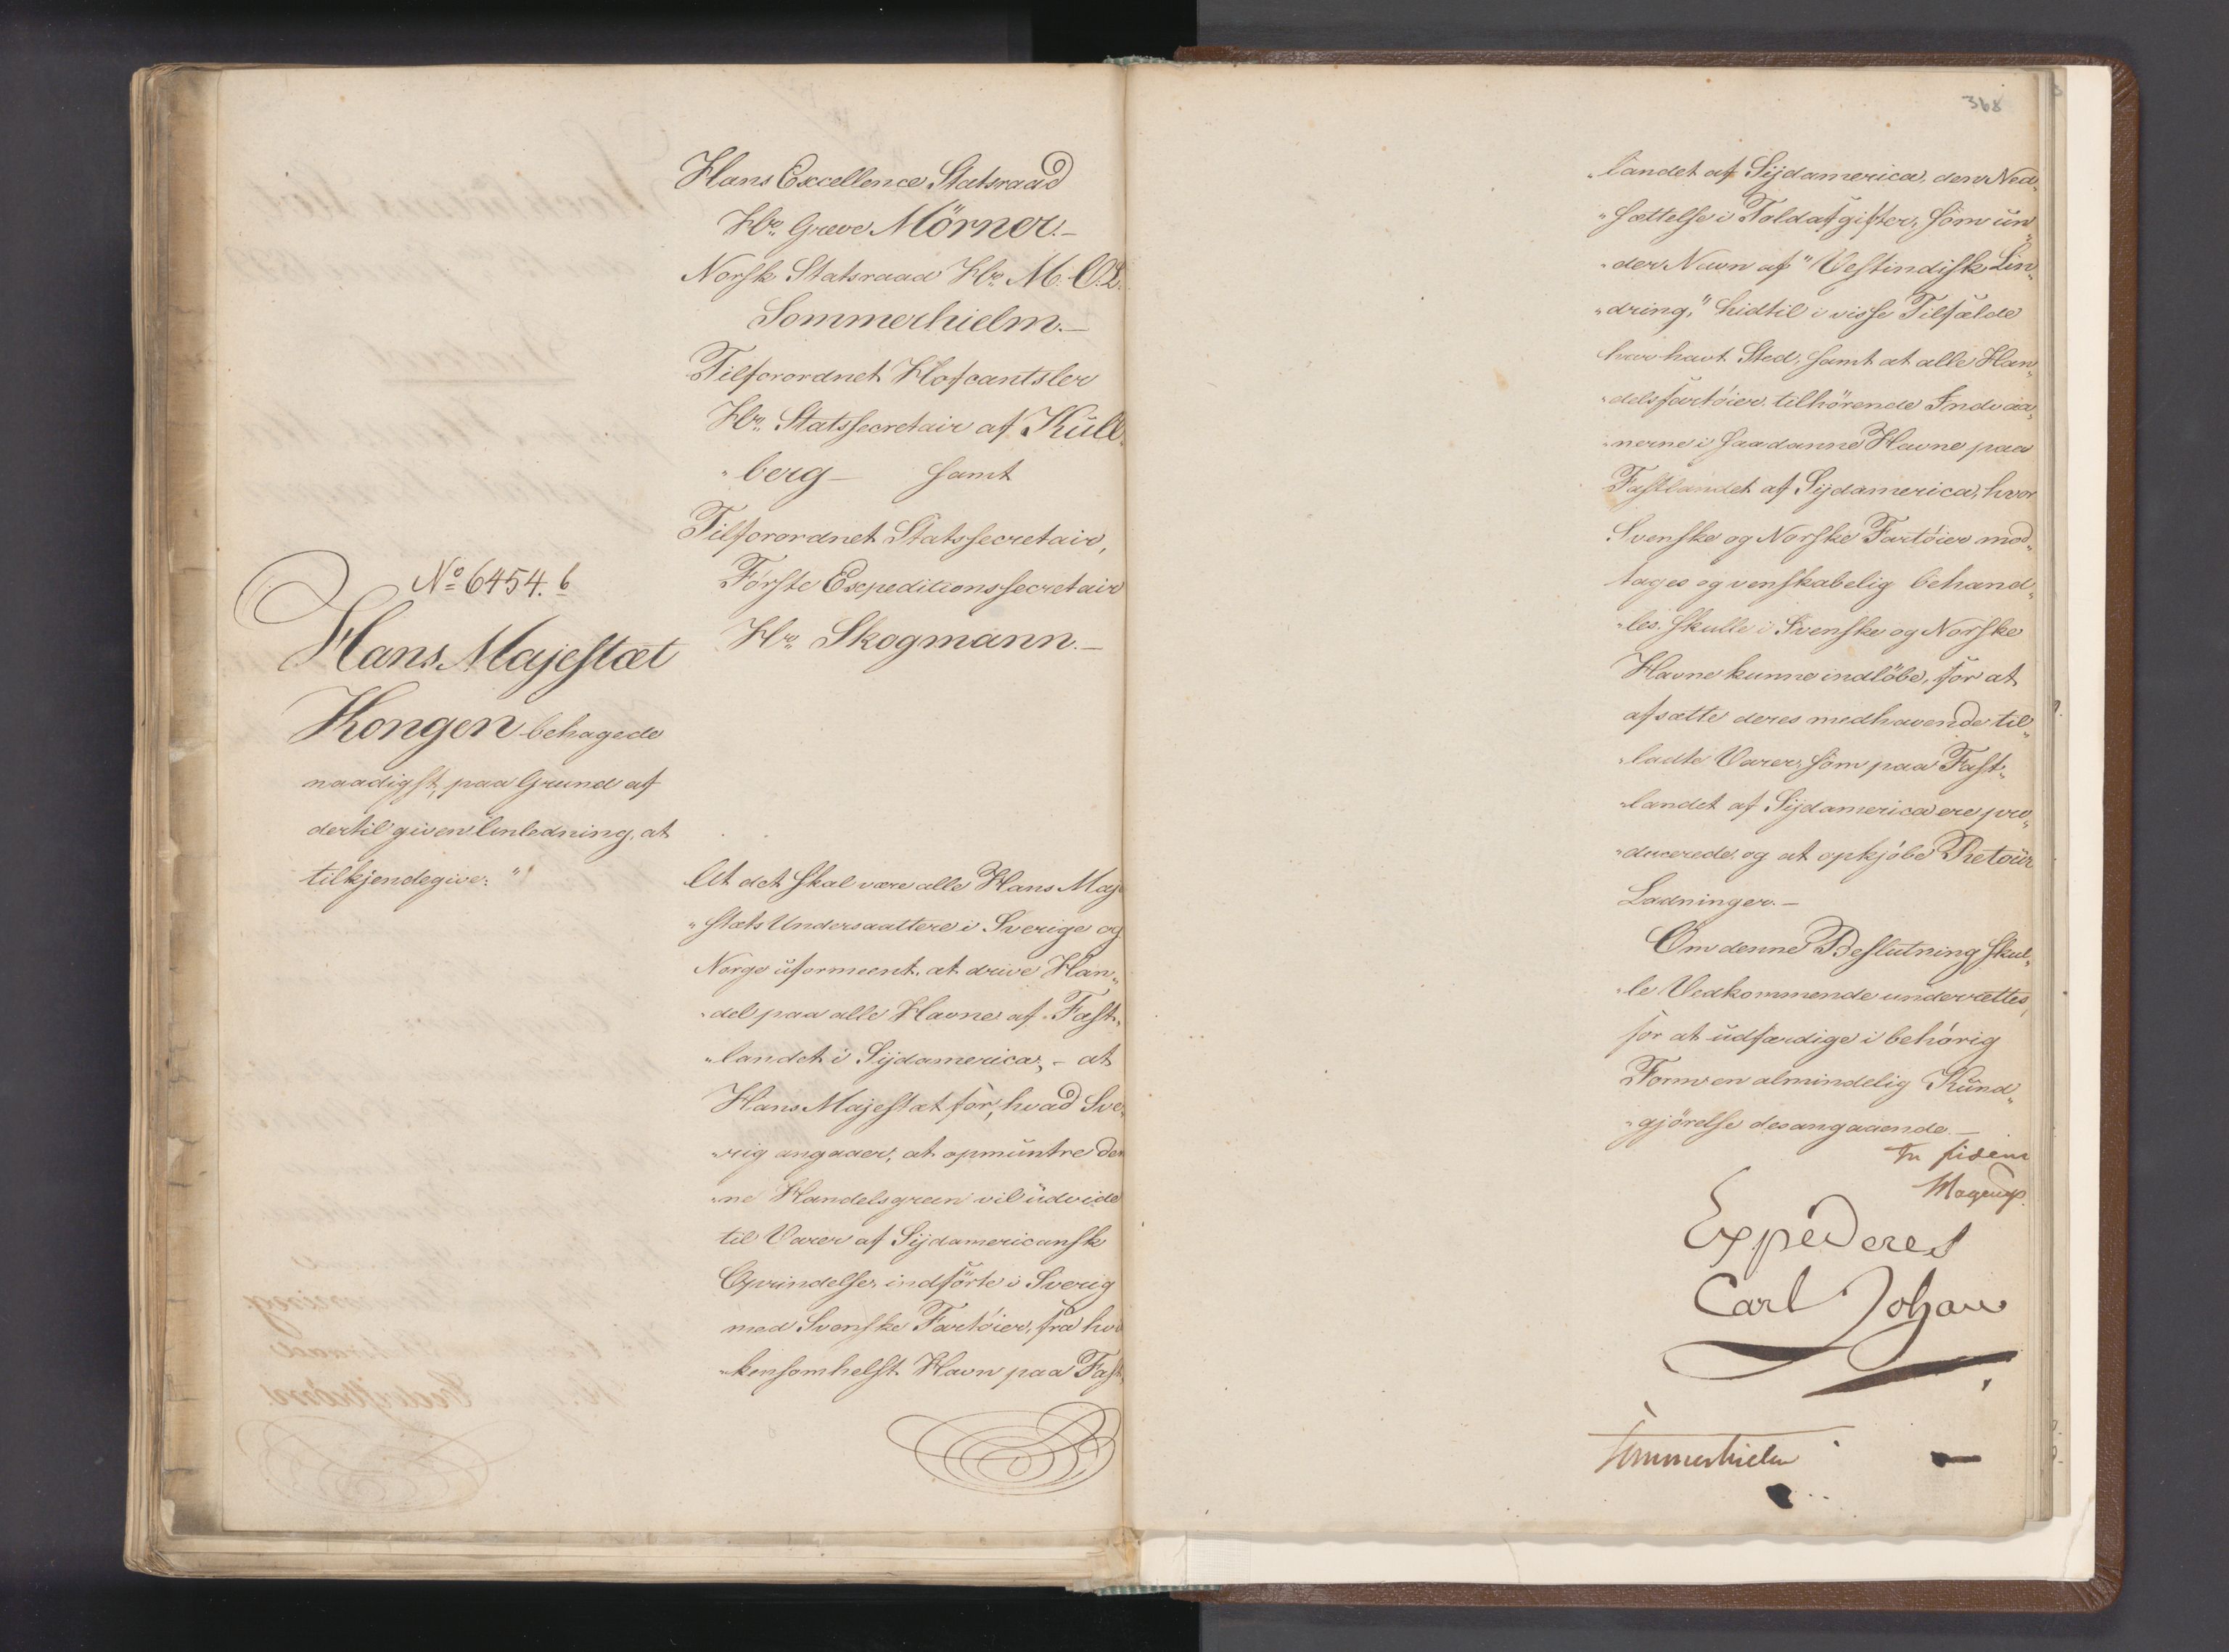 Hans Excellence Statsraad
Hr. Greve Mörner.—
Norsk Statsraad Hr. M. O. L.
Sommerhielm.—
Tilforordnet Hofcantsler
Hr. Statssecretair af Kull„
„berg — samt
Tilforordnet Statssecretair,
Förste Expeditionssecretair
Hr. Skogmann.—
No 6454. b
Hans Majestæt
Kongen behagede
naadigst, paa Grund af
dertil given Anledning, at
tilkjendegive: "
At det skal være alle Hans Maje
„stæts Undersaattere i Sverige og
Norge uformeent, at drive Han„
„del paa alle Havne af Fast„
„landet i Sydamerica, – at
Hans Majestæt for, hvad Sve„
„rig angaaer, at opmuntre den
„ne Handelsgreen vil udvide
til Varer af Sydamericansk
Oprindelse, indförte i Sverig
med Svenske Fartöier, fra hvil
„kensomhelst Havn paa Fast„
368
„landet af Sydamerica, den Ned„
„sættelse i Toldafgifter, som un„
„der Navn af "Vestindisk Lin„
„dring," hidtil i visse Tilfælde
har havt Sted, samt at alle Han„
„delsfartöier tilhörende Indvaa„
„nerne i saadanne Havne paa
Fastlandet af Sydamerica, hvor
Svenske og Norske Fartöier mod„
tages og venskabelig behand„
„les, skulle i Svenske og Norske
Havne kunne indlöbe, for at
afsætte deres medhavende til„
„ladte Varer, som paa Fast„
„landet af Sydamerica ere pro„
„ducerede, og at opkjöbe Retour
Ladninger.—
Om denne Beslutning skul„
„le Vedkommende underrettes,
for at udfærdige i behörig
Form en almindelig Kund„
„gjörelse desangaaende.—
In fidem
Expederes
Carl Johan
Sommerhielm